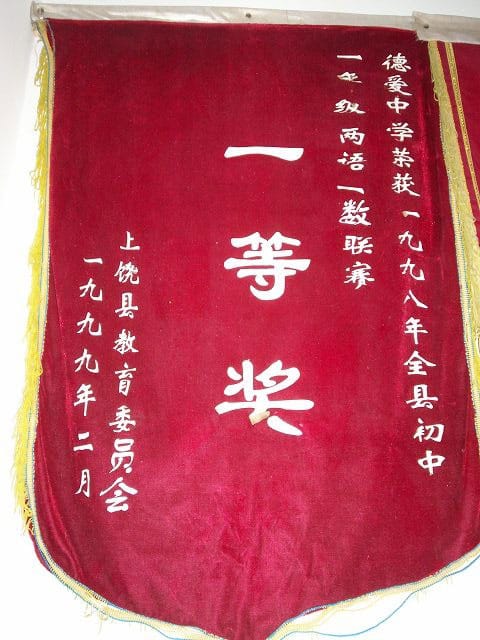 德爱中学荣获一九九八年全县初中
一年级两语一数联赛
一等奖
上饶县教育委员会
一九九九年二月